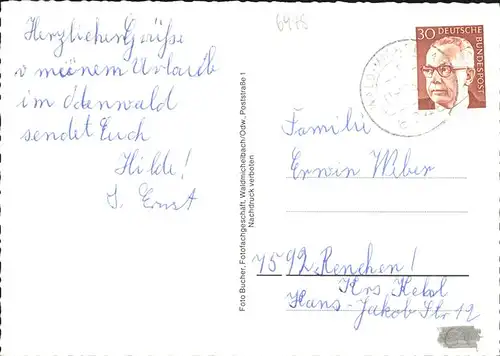 Herzlichen Grüße
v meinem Urlaub
im Odenwald
sendet Euch
Hilde!
S. Ernst
Foto Bucher, Fotofachgeschäft, Waldmichelbach/Odw., Poststraße 1
Nachdruck verboten
6948
30 DEUTSCHE
BUNDESPOST
Familie
Erwin Weber
7592 Renchen!
Krs Kehl
Hans-Jakob Str 12